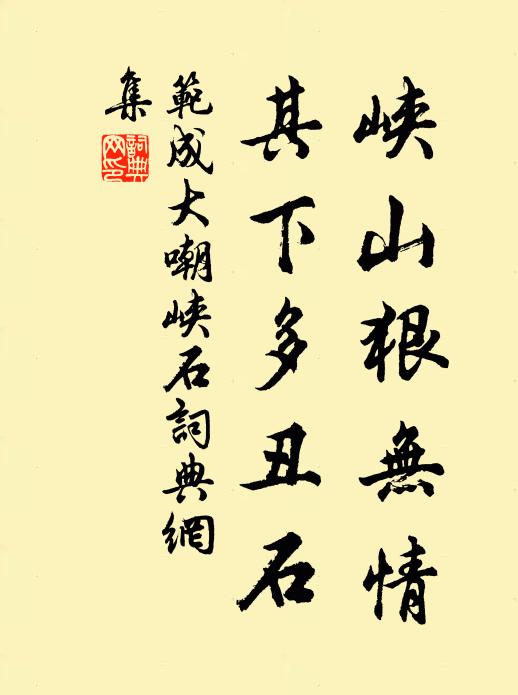 峡山狠無情
其下多丑石
範成大嘲峡石詞典網
集
詞典
网印